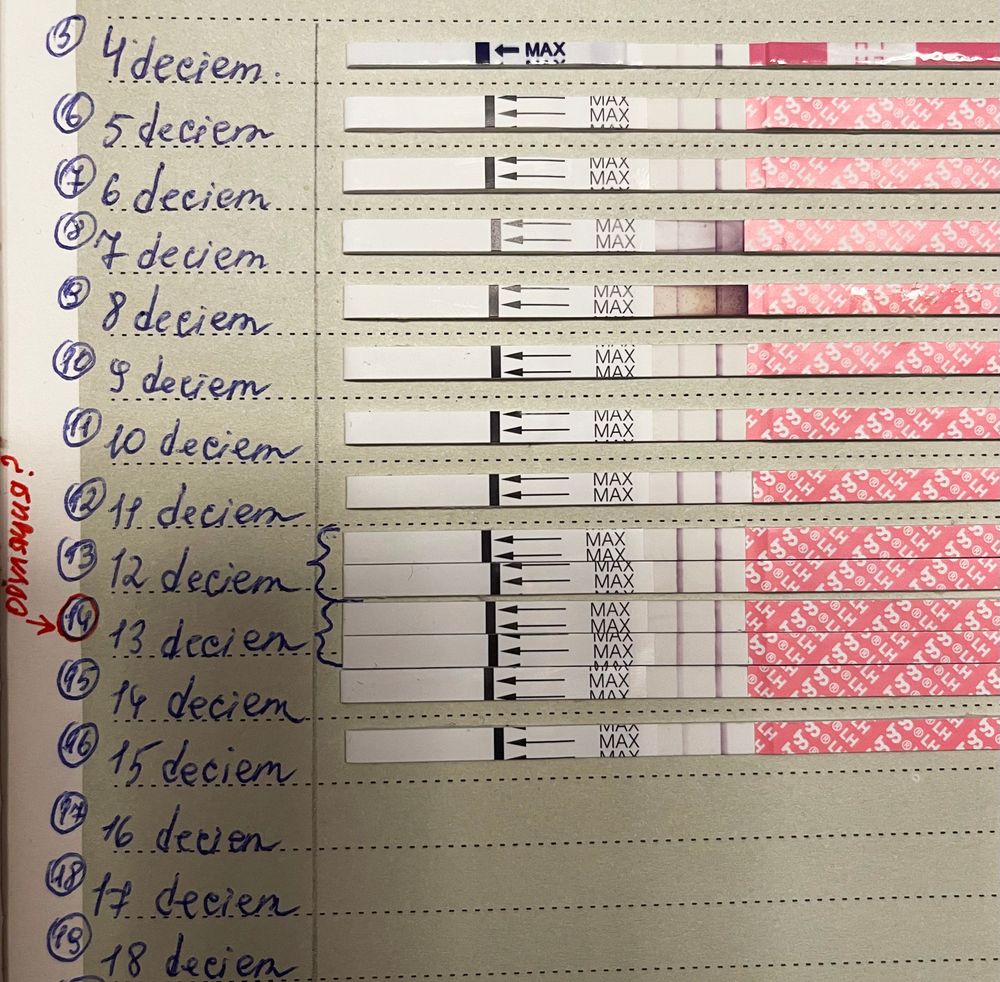 5 4 deciem. MAX
6 5 deciem MAX MAX ®LH
7 6 deciem MAX MAX ®LH
8 7 deciem MAX MAX ®LH
9 8 deciem MAX MAX ®LH
10 9 deciem MAX MAX ®LH
11 10 deciem MAX MAX ®LH
12 11 deciem MAX MAX ®LH
13 12 deciem MAX MAX ®LH
MAX MAX ®LH
овуляция?
14 13 deciem MAX MAX ®LH
MAX MAX ®LH
15 14 deciem MAX MAX ®LH
16 15 deciem MAX MAX ®LH
17 16 deciem
18 17 deciem
19 18 deciem